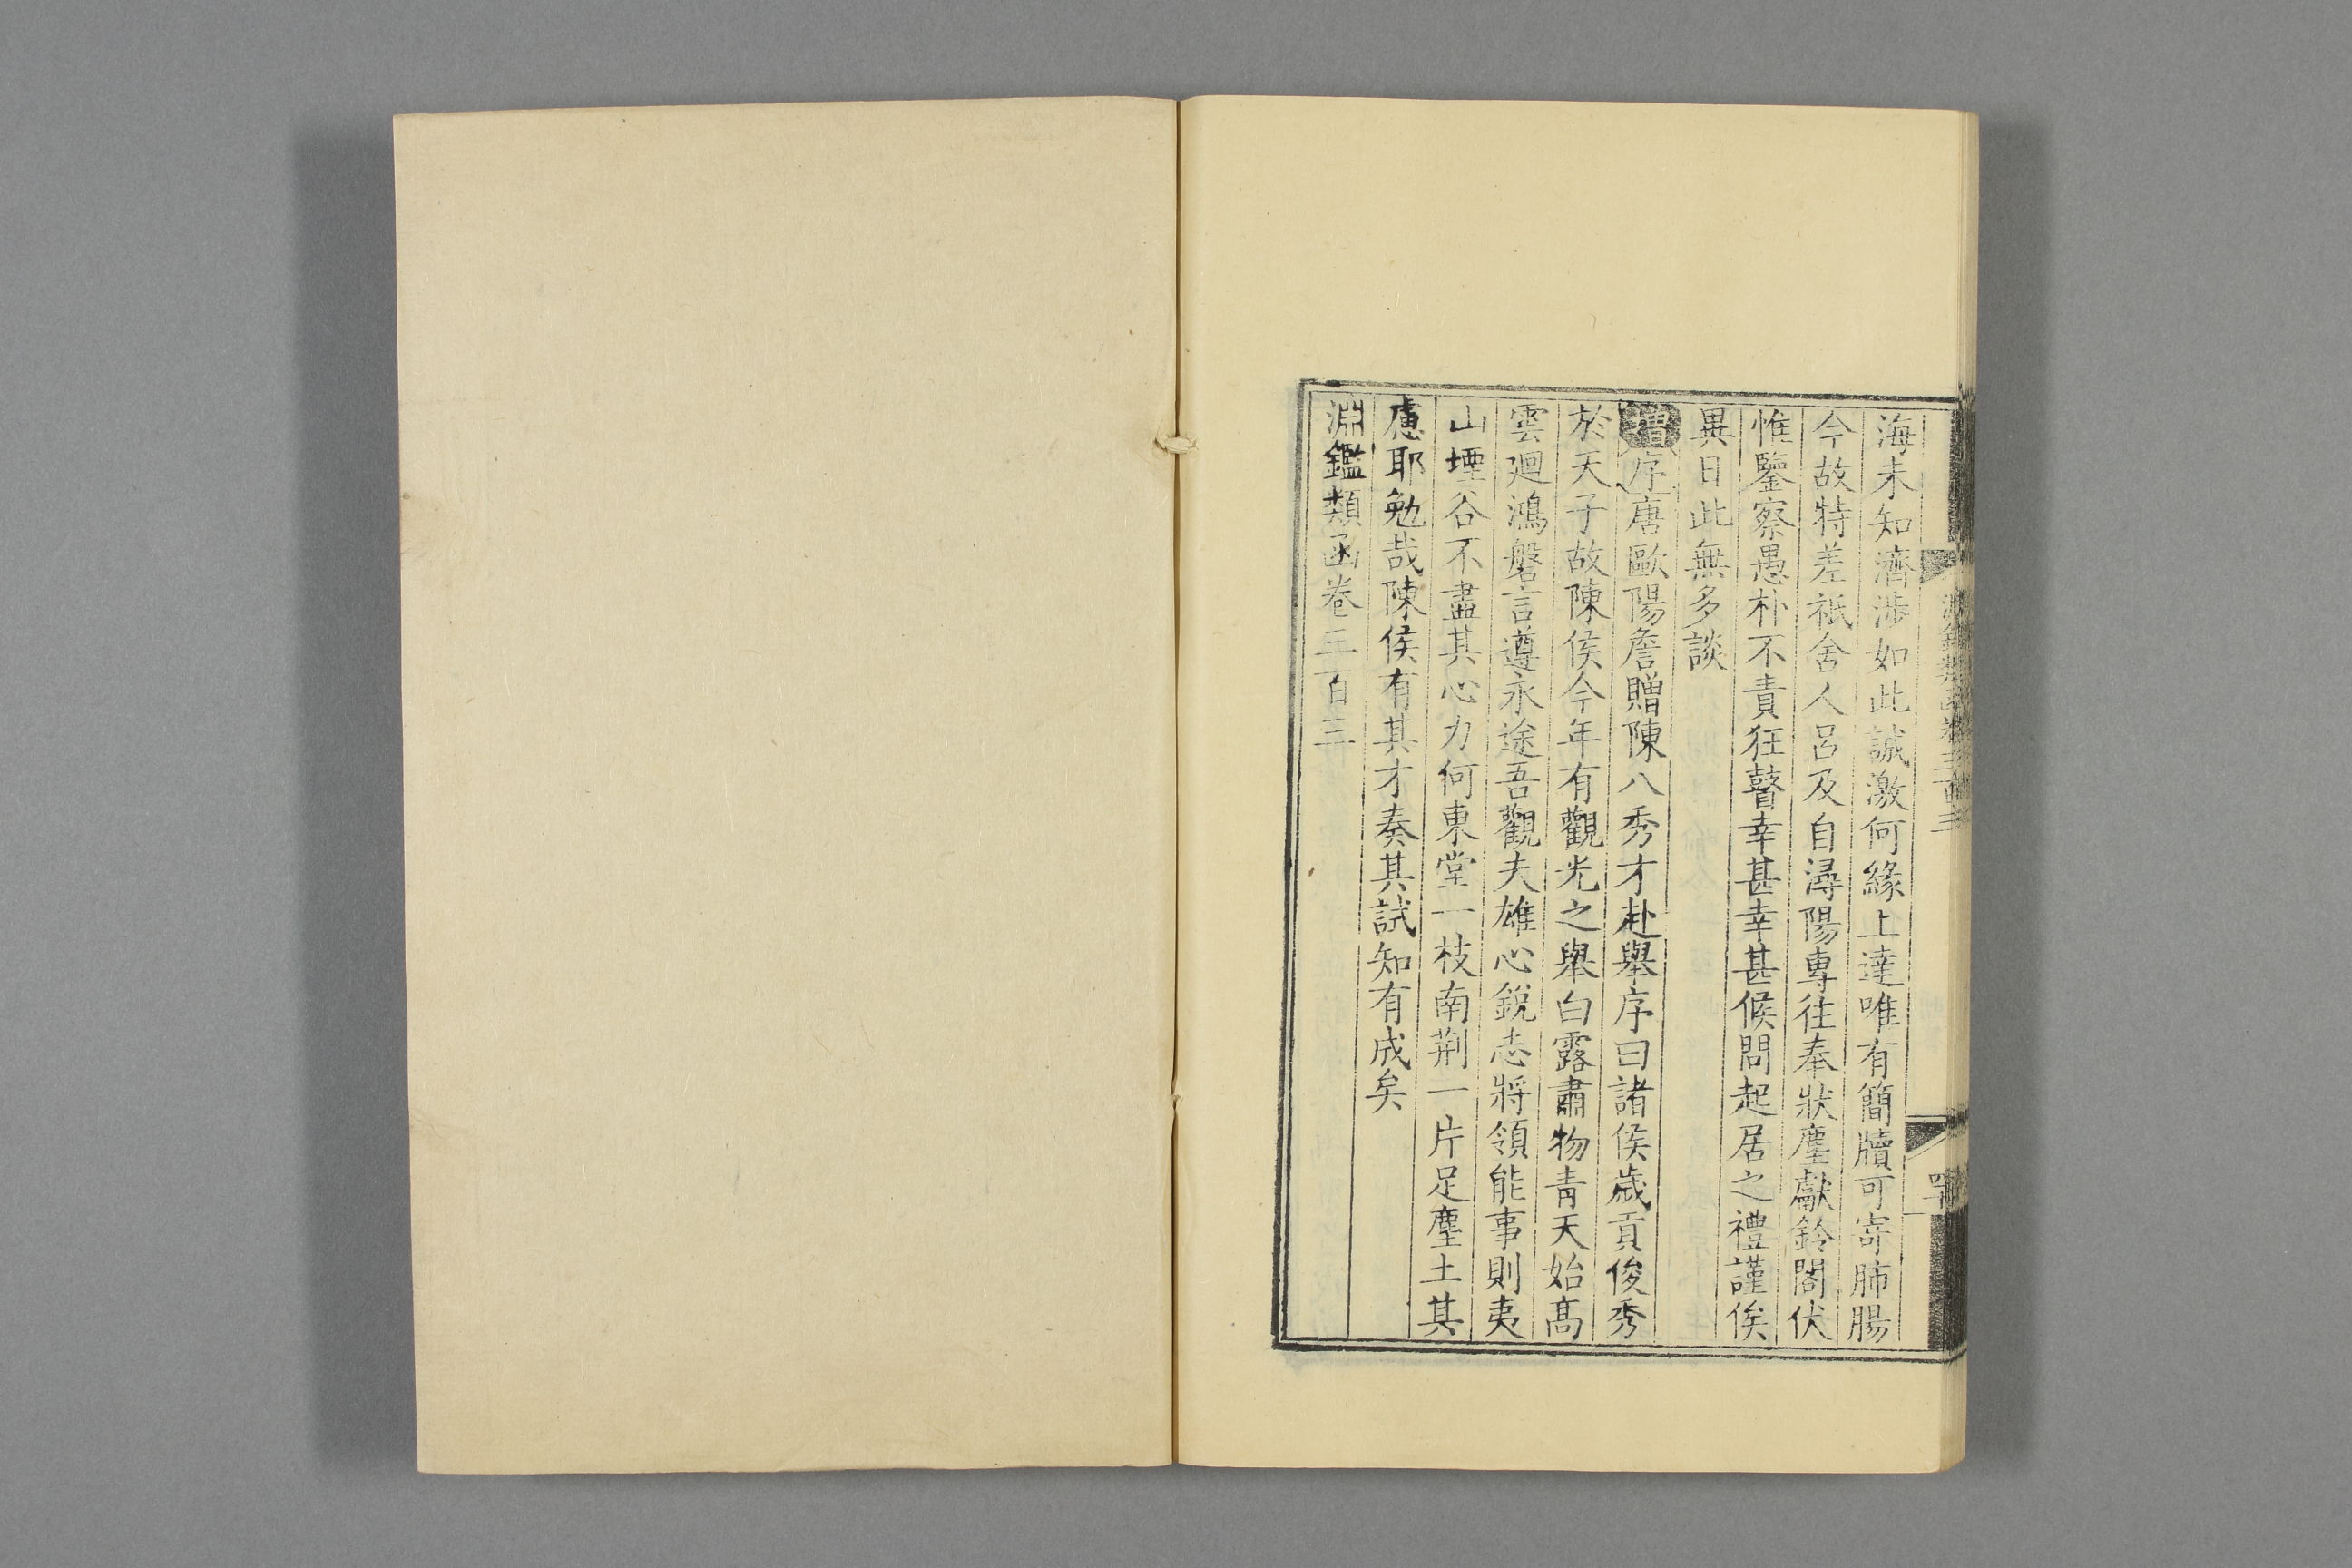 淵鑑類函卷三百三
海未知濟涉如此誠激何緣上達唯有簡牘可寄肺腸
今故特差祇舍人呂及自潯陽專往奉狀塵獻鈴閤伏
惟鑒察愚朴不責狂瞽幸甚幸甚候問起居之禮謹俟
異日此無多談
增序唐歐陽詹贈陳八秀才赴舉序曰諸侯歲貢俊秀
於天子故陳侯今年有觀光之舉白露肅物青天始髙
雲迴鴻磐言遵永途吾觀夫雄心銳志將領能事則夷
山堙谷不盡其心力何東堂一枝南荆一片足塵土其
慮耶勉哉陳侯有其才奏其試知有成矣
淵鑑類函卷三百三